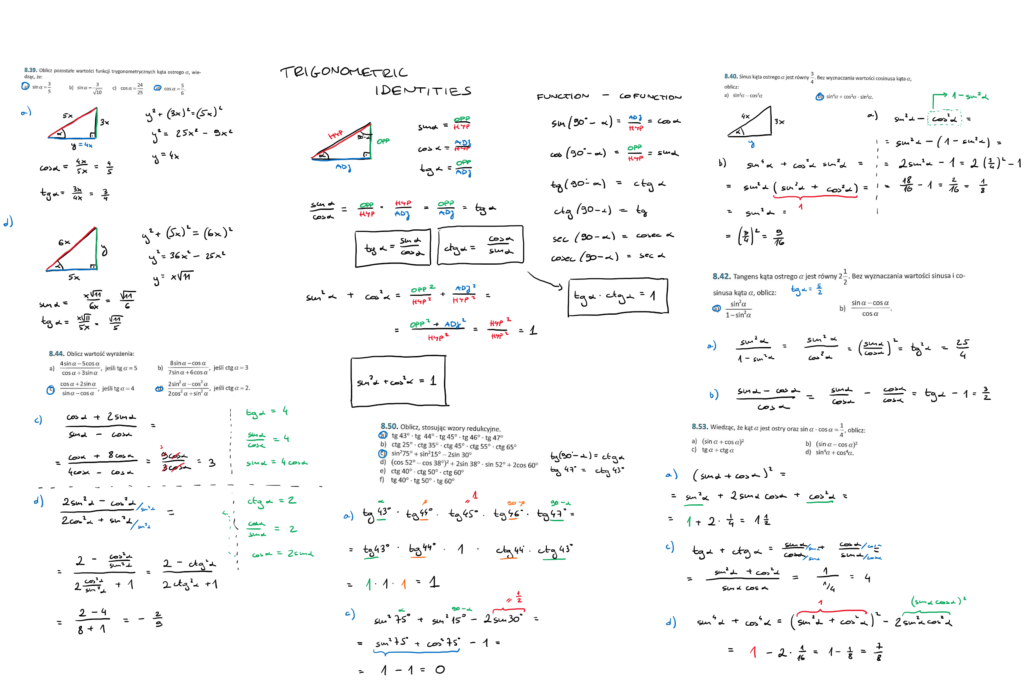 8.39. Oblicz pozostałe wartości funkcji trygonometrycznych kąta ostrego α, wie-
dząc, że:
a) sin α = 3/5 b) sin α = 3/√10 c) cos α = 24/25 d) cos α = 5/6
a)
5x
3x
α
y = 4x
y² + (3x)² = (5x)²
y² = 25x² - 9x²
y = 4x
cos α = 4x/5x = 4/5
tg α = 3x/4x = 3/4
d)
6x
y
α
5x
y² + (5x)² = (6x)²
y² = 36x² - 25x²
y = x√11
sin α = x√11/6x = √11/6
tg α = x√11/5x = √11/5
8.44. Oblicz wartość wyrażenia:
a) (4 sin α - 5 cos α)/(cos α + 3 sin α), jeśli tg α = 5 b) (8 sin α - cos α)/(7 sin α + 6 cos α), jeśli ctg α = 3
c) (cos α + 2 sin α)/(sin α - cos α), jeśli tg α = 4 d) (2 sin² α - cos² α)/(2 cos² α + sin² α), jeśli ctg α = 2.
c) (cos α + 2 sin α)/(sin α - cos α) =
= (cos α + 8 cos α)/(4 cos α - cos α) = 9 cos α/3 cos α = 3
tg α = 4
sin α/cos α = 4
sin α = 4 cos α
d) (2 sin² α - cos² α /sin² α)/(2 cos² α + sin² α /sin² α) =
ctg α = 2
cos α/sin α = 2
cos α = 2 sin α
= (2 - cos² α/sin² α)/(2 cos² α/sin² α + 1) = (2 - ctg² α)/(2 ctg² α + 1)
= (2 - 4)/(8 + 1) = - 2/9
TRIGONOMETRIC
IDENTITIES
HYP
90-α
OPP
α
ADJ
sin α = OPP/HYP
cos α = ADJ/HYP
tg α = OPP/ADJ
sin α/cos α = OPP/HYP · HYP/ADJ = OPP/ADJ = tg α
tg α = sin α/cos α
ctg α = cos α/sin α
sin² α + cos² α = OPP²/HYP² + ADJ²/HYP² =
= (OPP² + ADJ²)/HYP² = HYP²/HYP² = 1
sin² α + cos² α = 1
FUNCTION - COFUNCTION
sin (90° - α) = ADJ/HYP = cos α
cos (90° - α) = OPP/HYP = sin α
tg (90° - α) = ctg α
ctg (90 - α) = tg
sec (90 - α) = cosec α
cosec (90 - α) = sec α
tg α · ctg α = 1
8.50. Oblicz, stosując wzory redukcyjne.
a) tg 43° · tg 44° · tg 45° · tg 46° · tg 47°
b) ctg 25° · ctg 35° · ctg 45° · ctg 55° · ctg 65°
c) sin² 75° + sin² 15° - 2 sin 30°
d) (cos 52° - cos 38°)² + 2 sin 38° · sin 52° + 2 cos 60°
e) ctg 40° · ctg 50° · ctg 60°
f) tg 40° · tg 50° · tg 60°
tg (90° - α) = ctg α
tg 47° = ctg 43°
α = 1 90-α
a) tg 43° · tg 44° · tg 45° · tg 46° · tg 47° =
= tg 43° · tg 44° · 1 · ctg 44° · ctg 43°
= 1 · 1 · 1 = 1
α 90-α = 1/2
c) sin² 75° + sin² 15° - 2 sin 30° =
= sin² 75° + cos² 75° - 1 =
= 1 - 1 = 0
8.40. Sinus kąta ostrego α jest równy 3/4. Bez wyznaczania wartości cosinusa kąta α,
oblicz:
a) sin² α - cos² α b) sin⁴ α + cos² α · sin² α.
4x
3x
α
y
→ 1 - sin² α
a) sin² α - cos² α =
= sin² α - (1 - sin² α) =
= 2 sin² α - 1 = 2 (3/4)² - 1
= 18/16 - 1 = 2/16 = 1/8
b) sin⁴ α + cos² α sin² α =
= sin² α (sin² α + cos² α) =
1
= sin² α =
= (3/4)² = 9/16
8.42. Tangens kąta ostrego α jest równy 2 1/2. Bez wyznaczania wartości sinusa i co-
sinusa kąta α, oblicz: tg α = 5/2
a) sin² α/(1 - sin² α) b) (sin α - cos α)/cos α.
a) sin² α/(1 - sin² α) = sin² α/cos² α = (sin α/cos α)² = tg² α = 25/4
b) (sin α - cos α)/cos α = sin α/cos α - cos α/cos α = tg α - 1 = 3/2
8.53. Wiedząc, że kąt α jest ostry oraz sin α · cos α = 1/4, oblicz:
a) (sin α + cos α)² b) (sin α - cos α)²
c) tg α + ctg α d) sin⁴ α + cos⁴ α.
a) (sin α + cos α)² =
= sin² α + 2 sin α cos α + cos² α =
= 1 + 2 · 1/4 = 1 1/2
c) tg α + ctg α = sin α/cos α + cos α/sin α =
= (sin² α + cos² α)/(sin α cos α) = 1/(1/4) = 4
1 (sin α cos α)²
d) sin⁴ α + cos⁴ α = (sin² α + cos² α)² - 2 sin² α cos² α
= 1 - 2 · 1/16 = 1 - 1/8 = 7/8